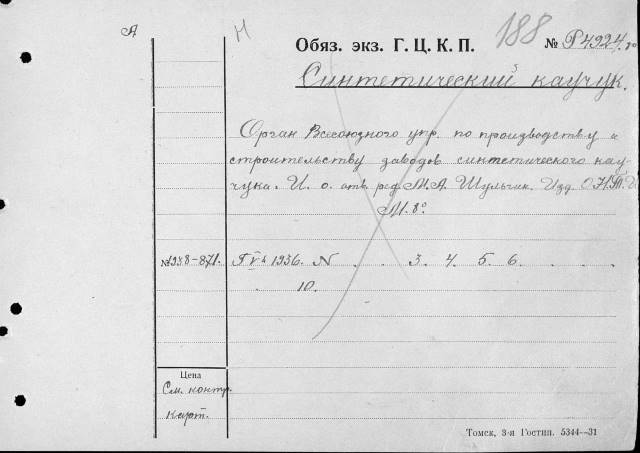 А
Н
Обяз. экз. Г. Ц. К. П. 188 № Р4924
Синтетический каучук.
Орган Всесоюзного упр. по производству и
строительству заводов синтетического кау-
чука. И. о. отв. ред. М.А. Шульчик. Изд. ОНТИ
М. 8º
№1938-871. 1936. N . . 3. 4. 5. 6. . . . .
10.
Цена
См. контр.
карт.
Томск, 3-я Гостип. 5344—31